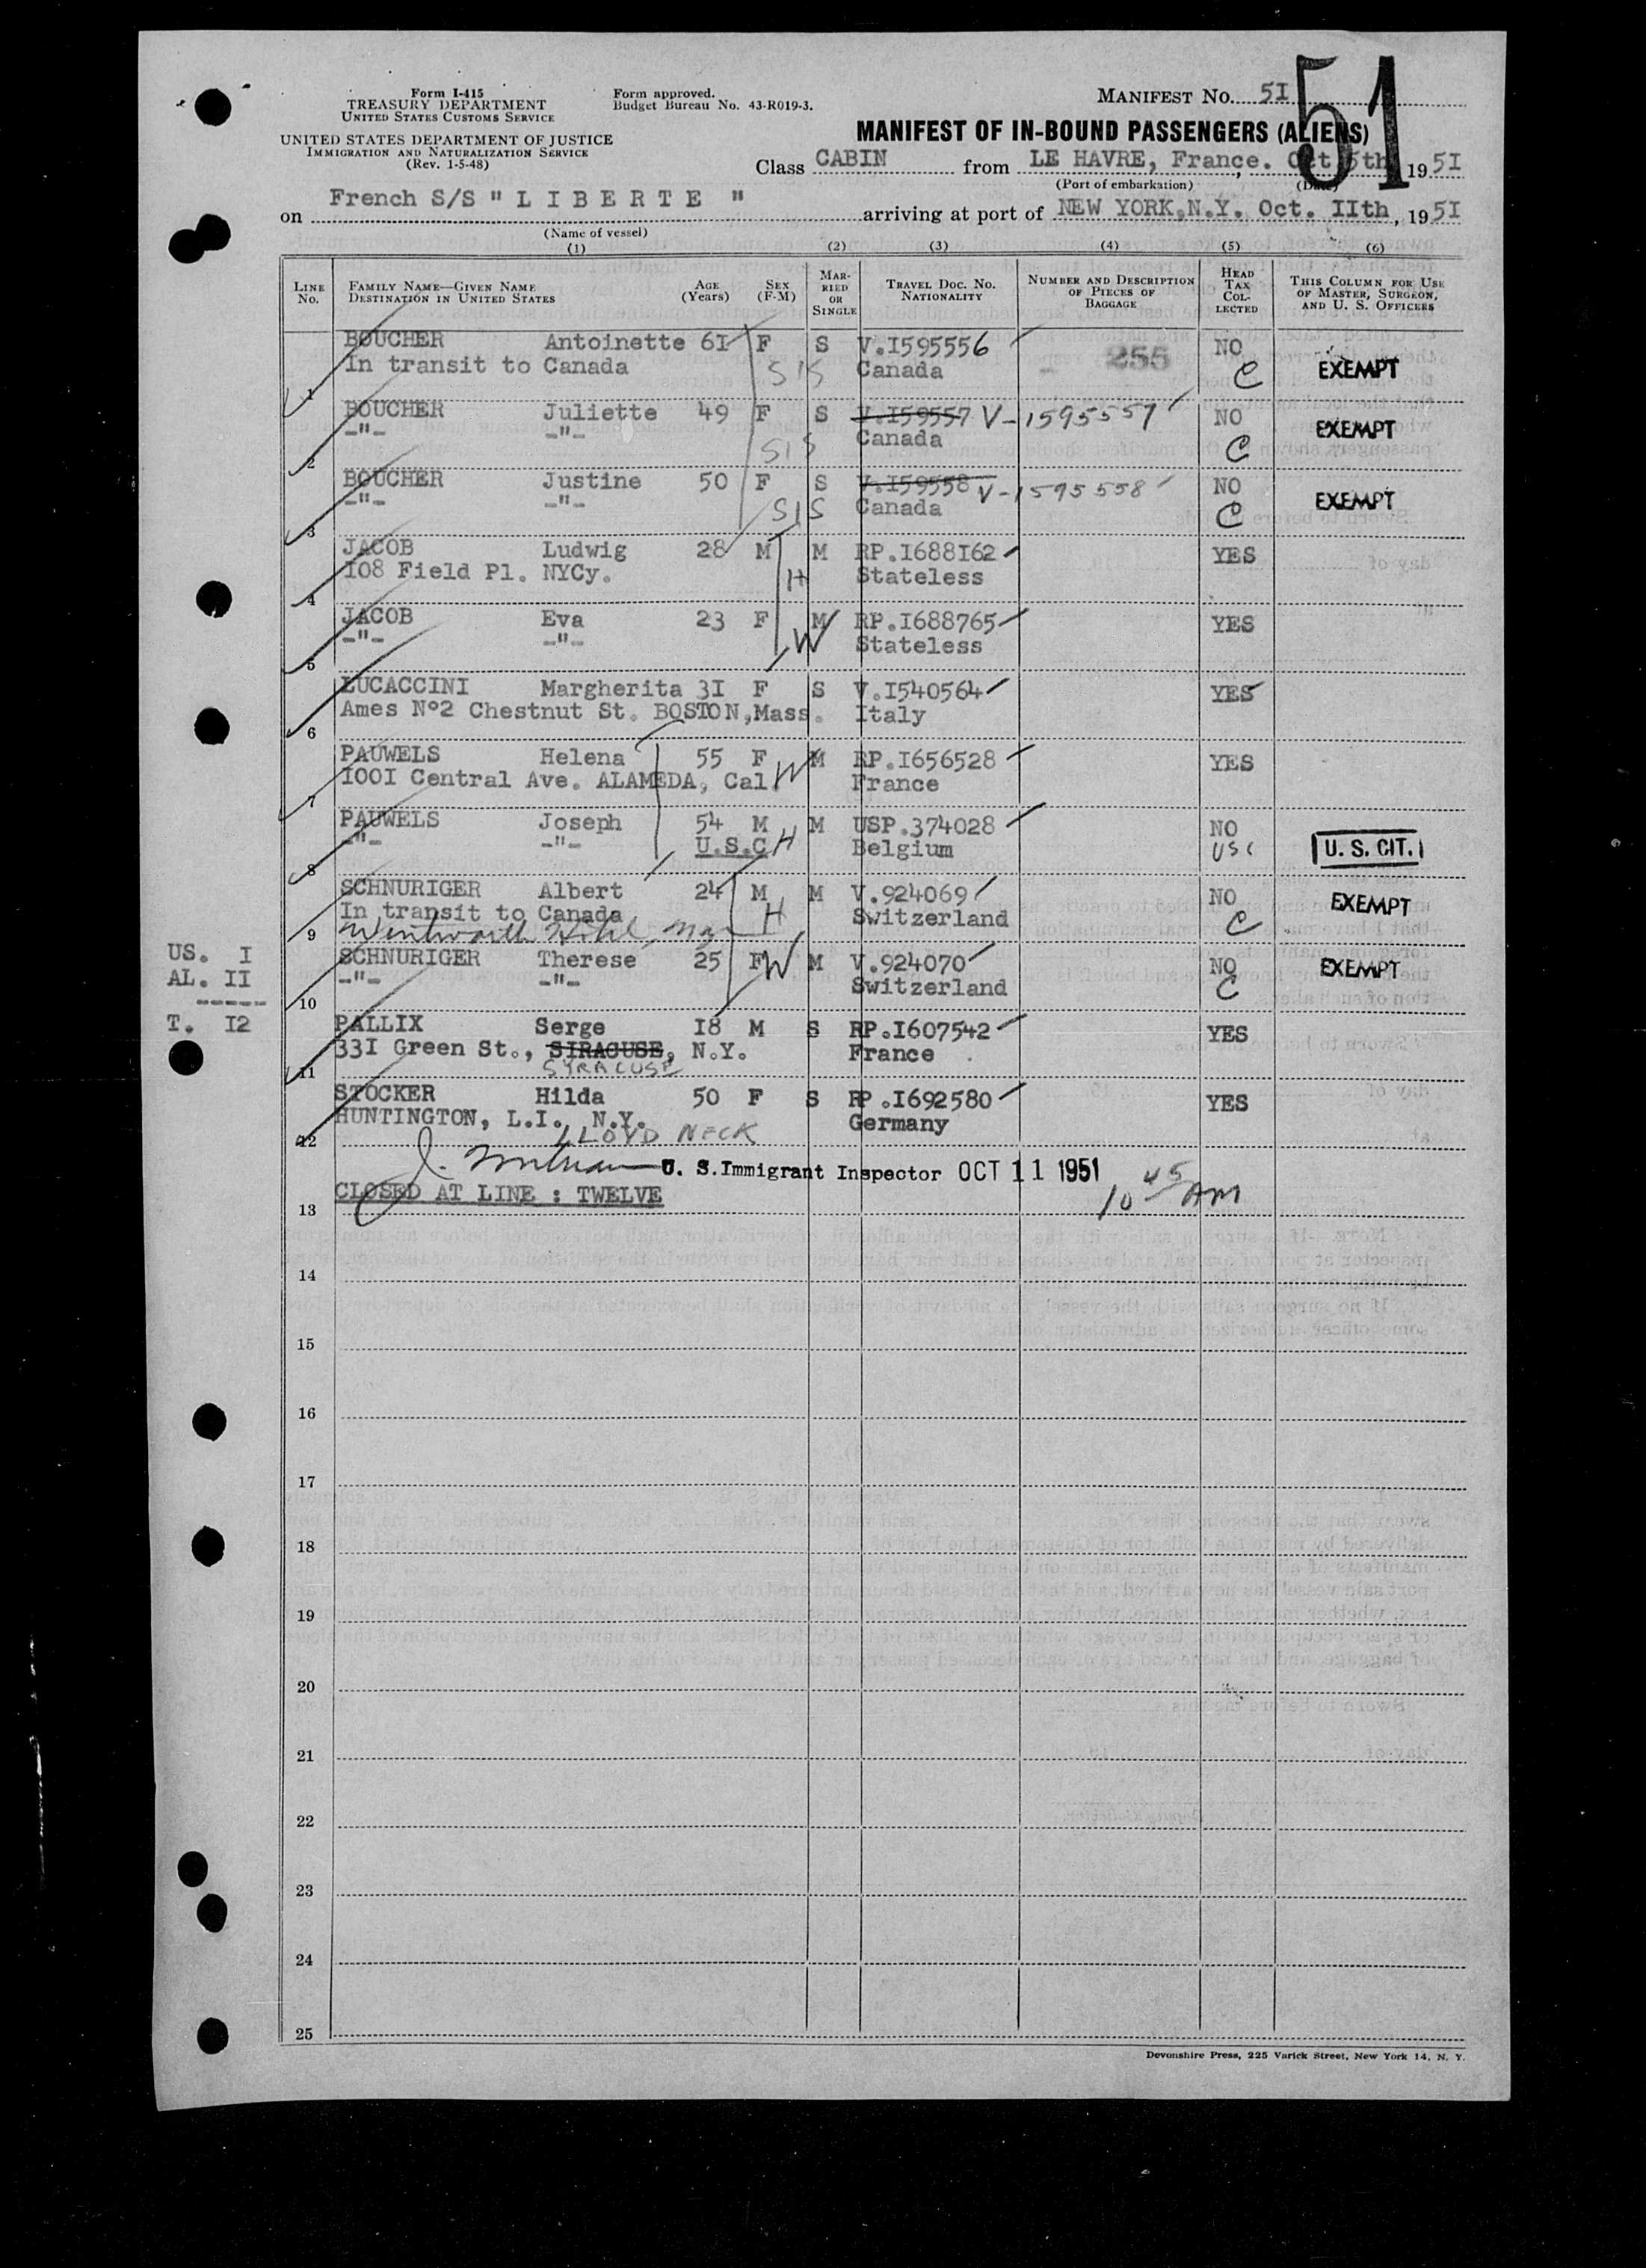 Form I-415
TREASURY DEPARTMENT
UNITED STATES CUSTOMS SERVICE
UNITED STATES DEPARTMENT OF JUSTICE
IMMIGRATION AND NATURALIZATION SERVICE
(Rev. 1-5-48)
Form approved.
Budget Bureau No. 43-R019-3.
MANIFEST NO. 5I
51
MANIFEST OF IN-BOUND PASSENGERS (ALIENS)
Class CABIN from LE HAVRE, France. Oct 5th 19 5I
(Port of embarkation) (Date)
on French S/S " L I B E R T E " arriving at port of NEW YORK,N.Y. Oct. IIth, 19 5I
(Name of vessel)
(1) (2) (3) (4) (5) (6)
LINE No. FAMILY NAME—GIVEN NAME DESTINATION IN UNITED STATES AGE (Years) SEX (F-M) MARRIED OR SINGLE TRAVEL DOC. NO. NATIONALITY NUMBER AND DESCRIPTION OF PIECES OF BAGGAGE HEAD TAX COLLECTED THIS COLUMN FOR USE OF MASTER, SURGEON, AND U. S. OFFICERS
BOUCHER Antoinette 6I F S V.I595556 255 NO
1 In transit to Canada SIS Canada C EXEMPT
BOUCHER Juliette 49 F S V.I59557 V-1595557 NO
2 -"- -"- SIS Canada C EXEMPT
BOUCHER Justine 50 F S V.I59558 V-1595558 NO
3 -"- -"- SIS Canada C EXEMPT
JACOB Ludwig 28 M M RP.I688I62 YES
4 I08 Field Pl. NYCy. H Stateless
JACOB Eva 23 F M RP.I688765 YES
5 -"- -"- W Stateless
LUCACCINI Margherita 3I F S V.I540564 YES
6 Ames N°2 Chestnut St. BOSTON,Mass. Italy
PAUWELS Helena 55 F W M RP.I656528 YES
7 I00I Central Ave. ALAMEDA, Cal. France
PAUWELS Joseph 54 M M USP.374028 NO
8 -"- -"- U.S.C H Belgium USC U. S. CIT.
SCHNURIGER Albert 24 M M V.924069 NO EXEMPT
In transit to Canada H Switzerland C
9 Wentworth Hotel, Ny
SCHNURIGER Therese 25 F W M V.924070 NO EXEMPT
10 -"- -"- Switzerland C
US. I
AL. II
-----
T. I2
PALLIX Serge I8 M S RP.I607542 YES
33I Green St., SIRACUSE, N.Y. France
11 SYRACUSE
STOCKER Hilda 50 F S RP.I692580 YES
HUNTINGTON, L.I., N.Y. Germany
12 LLOYD NECK
U. S. Immigrant Inspector OCT 11 1951
10 45 AM
13 CLOSED AT LINE : TWELVE
14
15
16
17
18
19
20
21
22
23
24
25
Devonshire Press, 225 Varick Street, New York 14, N. Y.